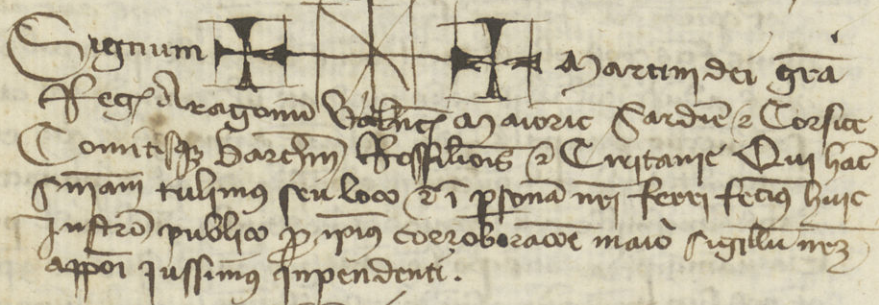 Signum Martini dei gra
Reg Aragonu Valenc Maioric Sardin & Corsice
Comitisq Barchin Rossilionis & Ceritanie Qui hac
sniam tulimus seu loco & i psona nri ferri fecimus huic
Instro publico p ipius corroboracoe maiori sigillu nrm
apponi iussimus inpendenti.